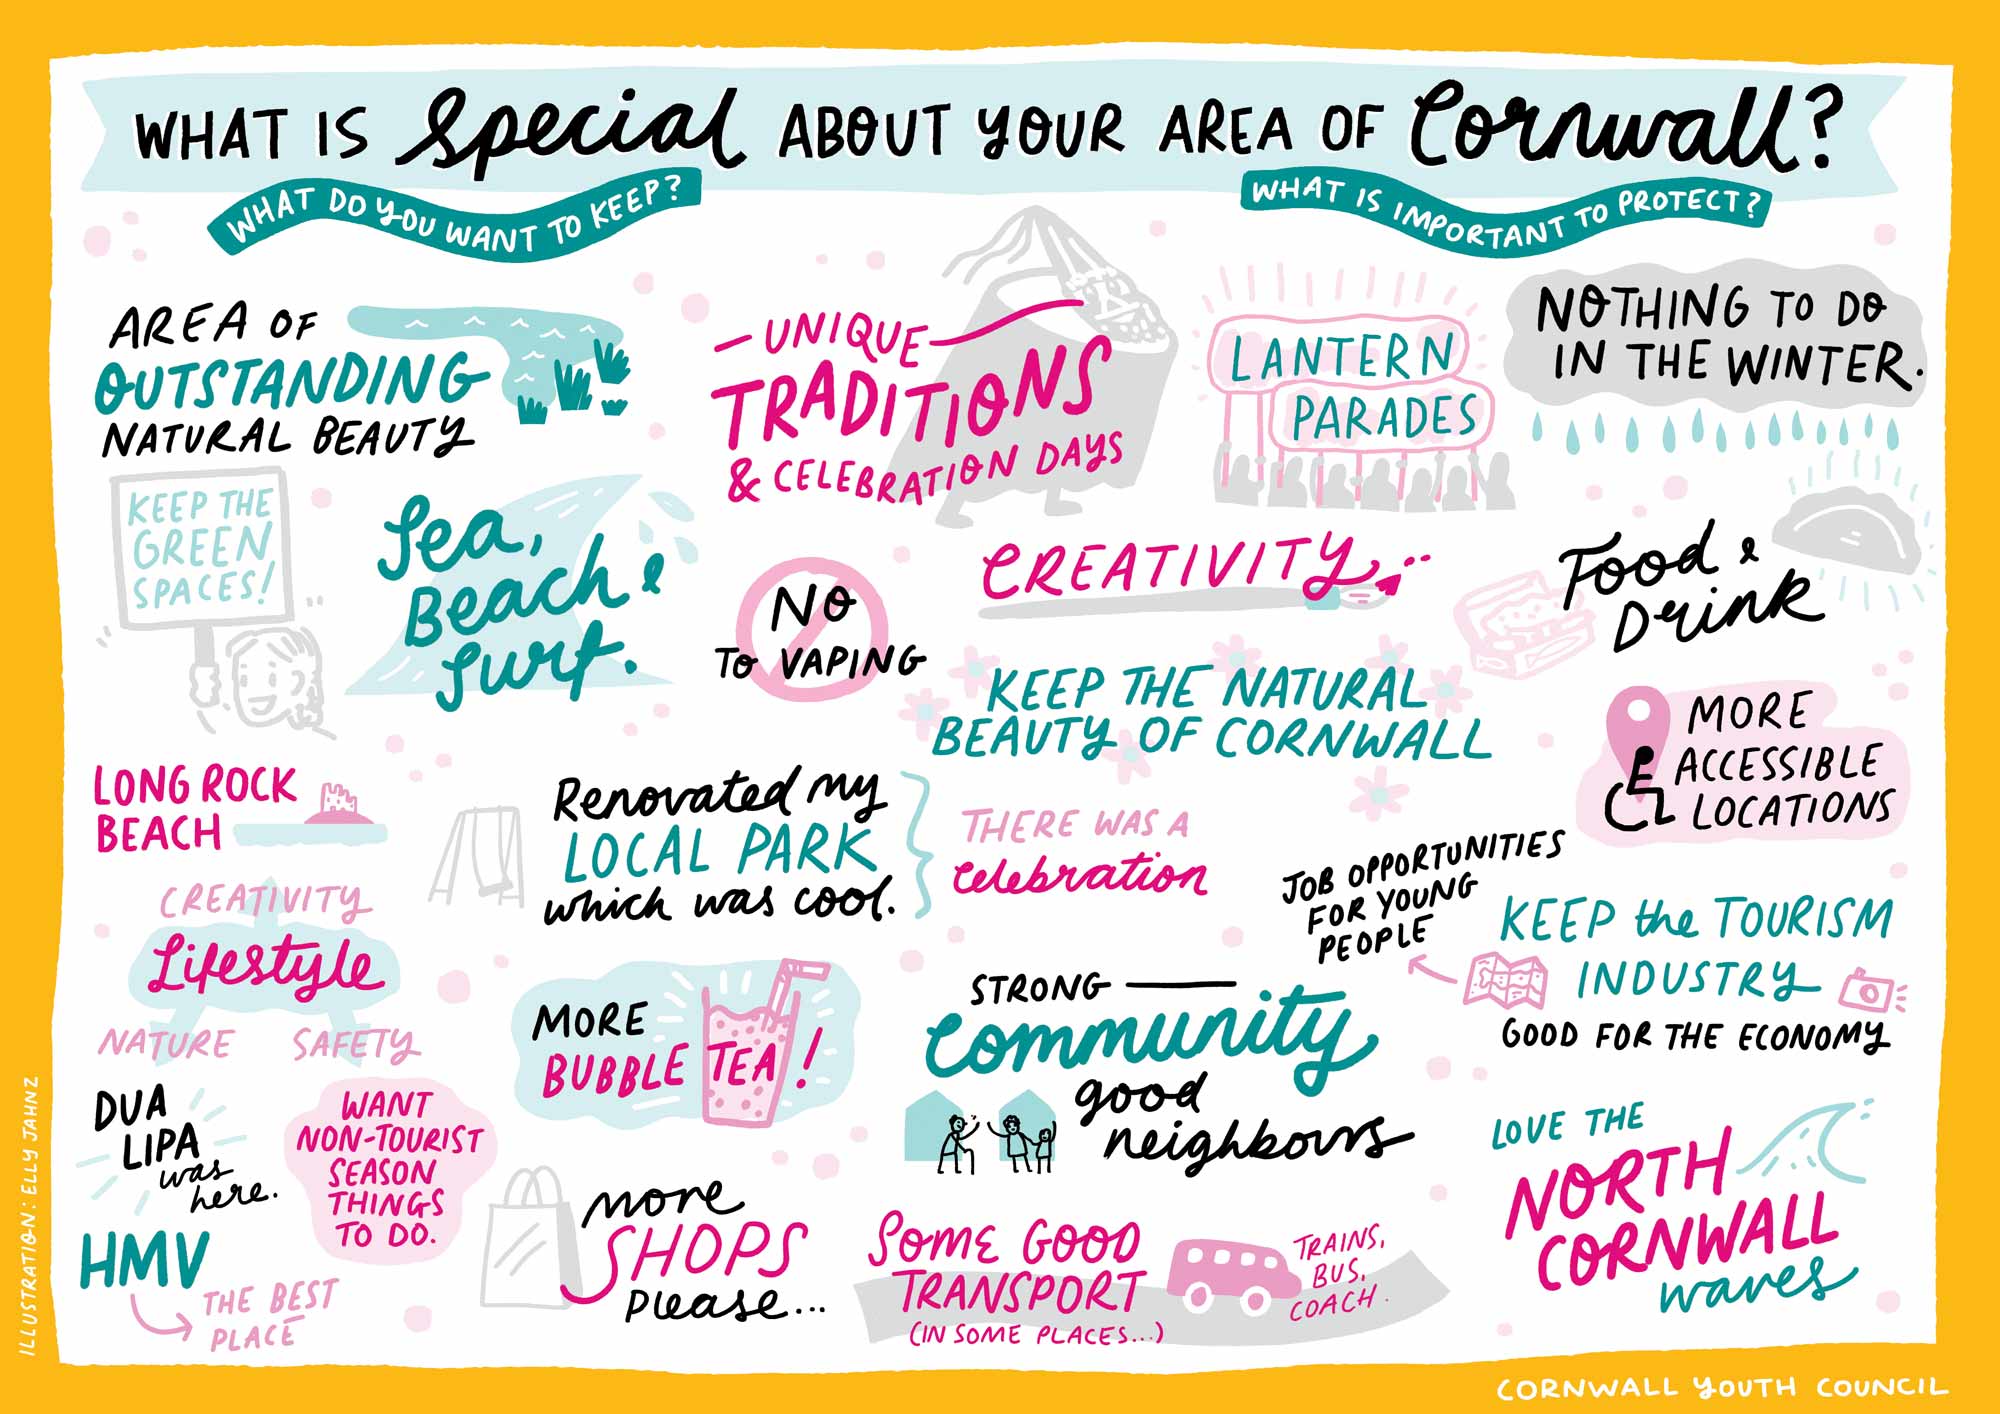 WHAT IS Special ABOUT YOUR AREA OF Cornwall?
WHAT DO YOU WANT TO KEEP?
WHAT IS IMPORTANT TO PROTECT?
AREA OF
OUTSTANDING
NATURAL BEAUTY
UNIQUE
TRADITIONS
& CELEBRATION DAYS
LANTERN
PARADES
NOTHING TO DO
IN THE WINTER.
KEEP THE
GREEN
SPACES!
Sea,
Beach &
Surf.
NO
TO VAPING
CREATIVITY
Food &
Drink
KEEP THE NATURAL
BEAUTY OF CORNWALL
MORE
ACCESSIBLE
LOCATIONS
LONG ROCK
BEACH
Renovated my
LOCAL PARK
which was cool.
THERE WAS A
celebration
JOB OPPORTUNITIES
FOR YOUNG
PEOPLE
KEEP the TOURISM
INDUSTRY
GOOD FOR THE ECONOMY
CREATIVITY
Lifestyle
NATURE SAFETY
MORE
BUBBLE TEA!
STRONG
Community
good
neighbours
DUA
LIPA
was
here.
WANT
NON-TOURIST
SEASON
THINGS
TO DO.
HMV
THE BEST
PLACE
more
SHOPS
please...
SOME GOOD
TRANSPORT
(IN SOME PLACES...)
TRAINS,
BUS,
COACH.
LOVE THE
NORTH
CORNWALL
waves
ILLUSTRATION: ELLY JAHNZ
CORNWALL YOUTH COUNCIL